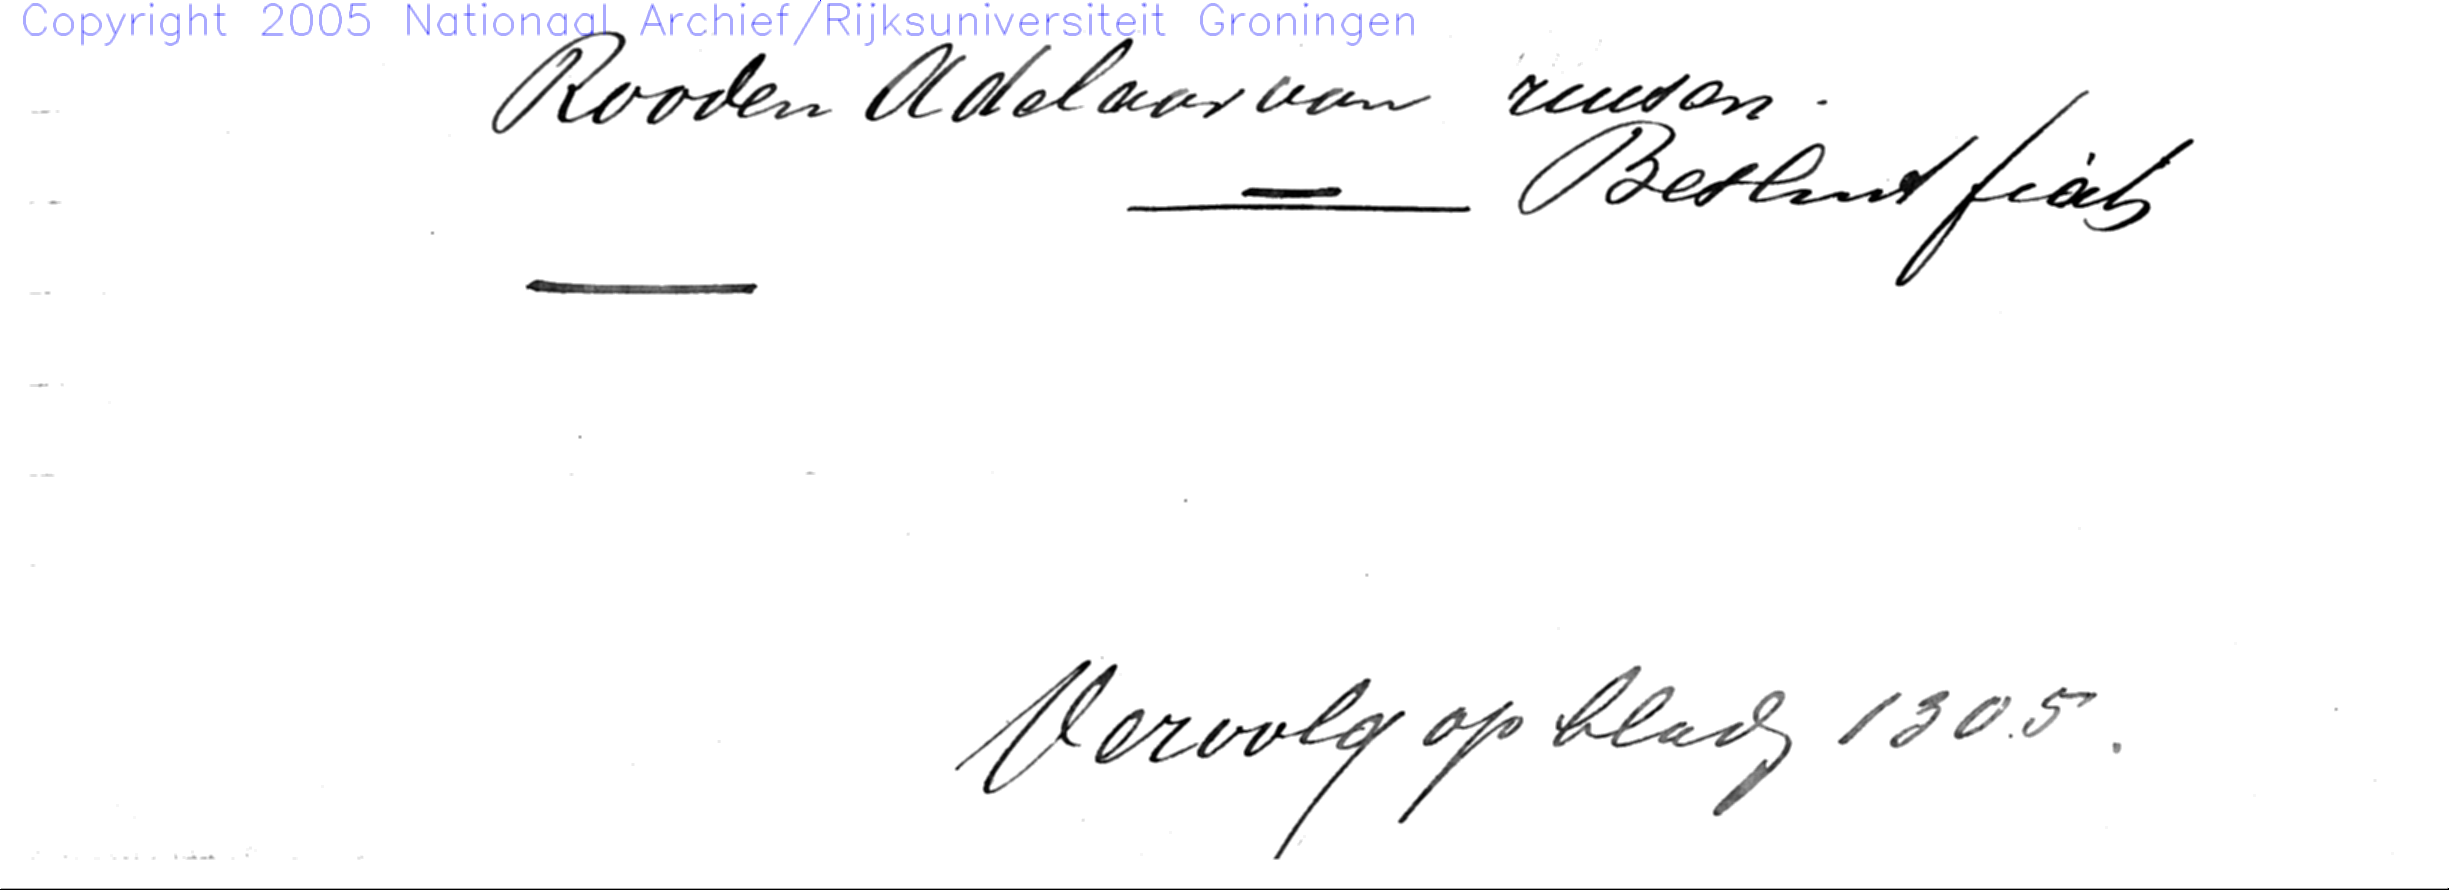 Copyright 2005 Nationaal Archief/Rijksuniversiteit Groningen
Rooden Adelaar van
Besluit fiat
Vervolg op bladz 1305.